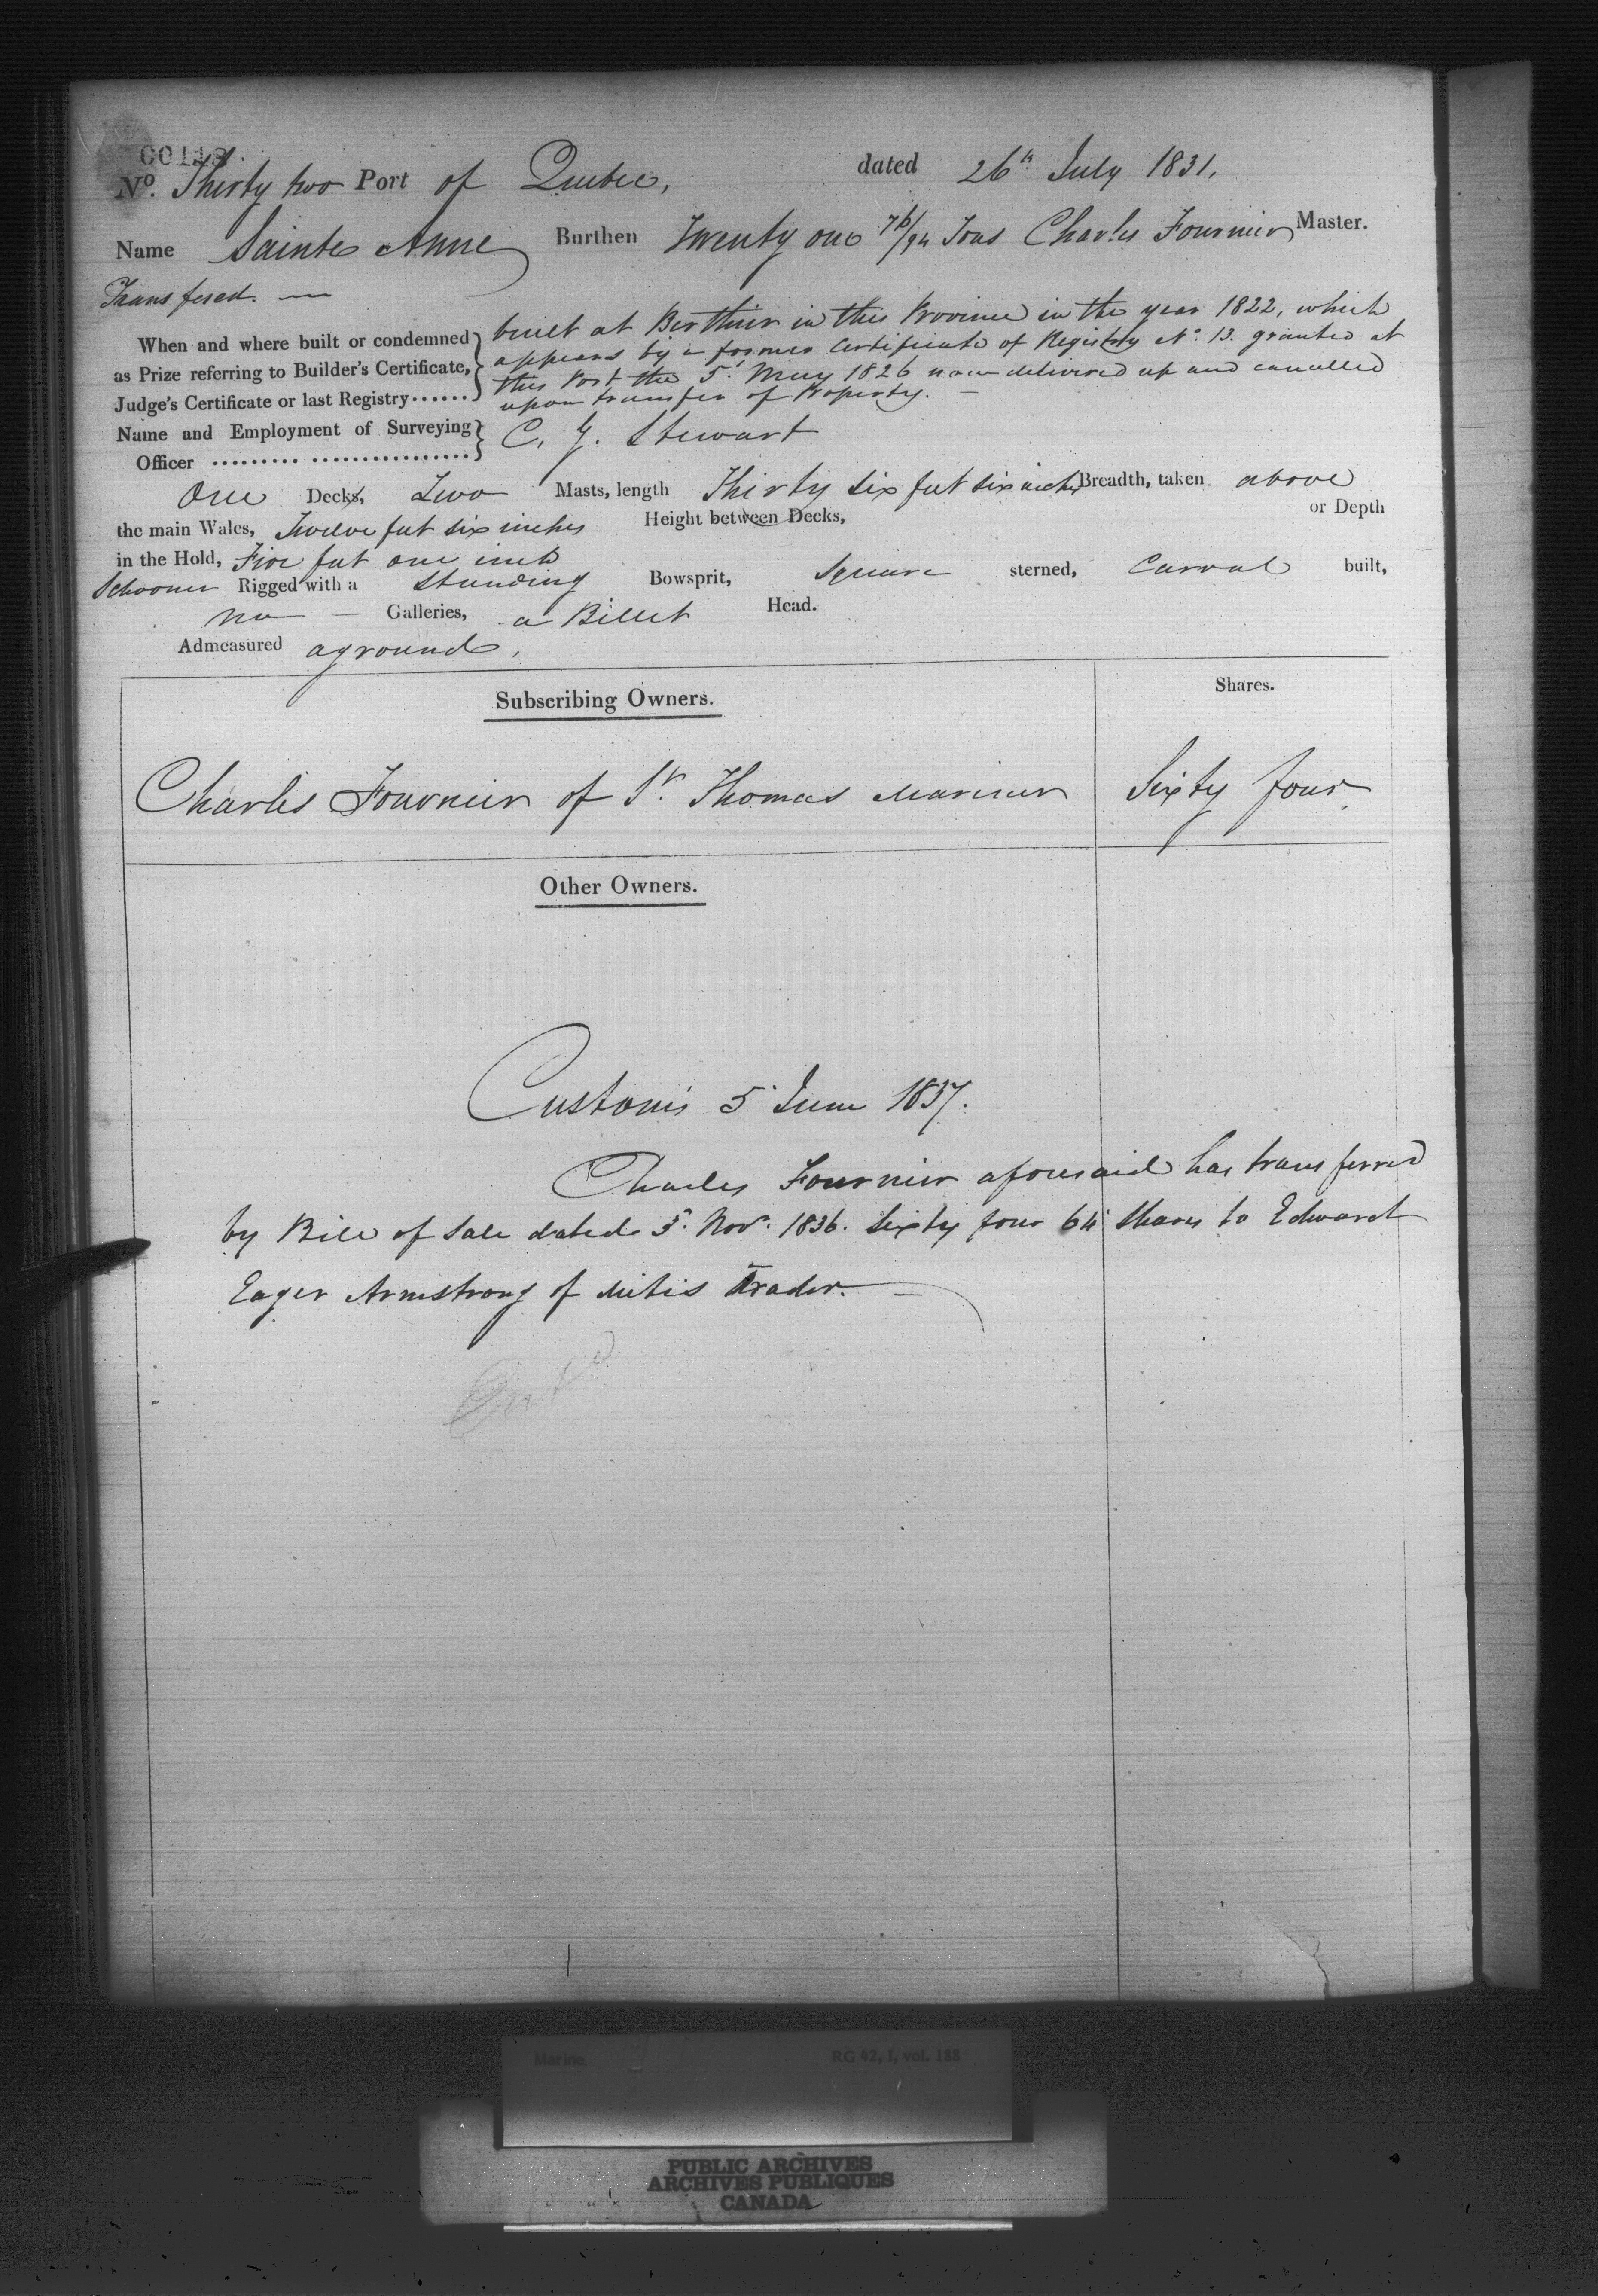 No. Thirty two Port of Quebec, dated 26th July 1831.
Name Sainte Anne Burthen Twenty one 76/94 Tons Charles Fournier Master.
Transfered. —
When and where built or condemned as Prize referring to Builder's Certificate, Judge's Certificate or last Registry......
built at Berthier in this Province in the year 1822, which
appears by a former Certificate of Registry No. 13. granted at
this Port the 5. May 1826 now delivered up and cancelled
upon transfer of Property. —
Name and Employment of Surveying Officer ......... ................ C. G. Stewart
One Decks, Two Masts, length Thirty six feet six inches Breadth, taken above
the main Wales, Twelve feet six inches Height between Decks, or Depth
in the Hold, Five feet one inch
Schooner Rigged with a Standing Bowsprit, Square sterned, Carval built,
no — Galleries, a Billet Head.
Admeasured aground.
Subscribing Owners. Shares.
Charles Fournier of St. Thomas Mariner Sixty four
Other Owners.
Customs 5 June 1837.
Charles Fournier aforesaid has transferred
by Bill of Sale dated 5. Novr. 1836. Sixty four 64 Shares to Edward
Eager Armstrong of Mitis Trader. —
Entd
Marine RG 42, I, vol. 188
PUBLIC ARCHIVES
ARCHIVES PUBLIQUES
CANADA